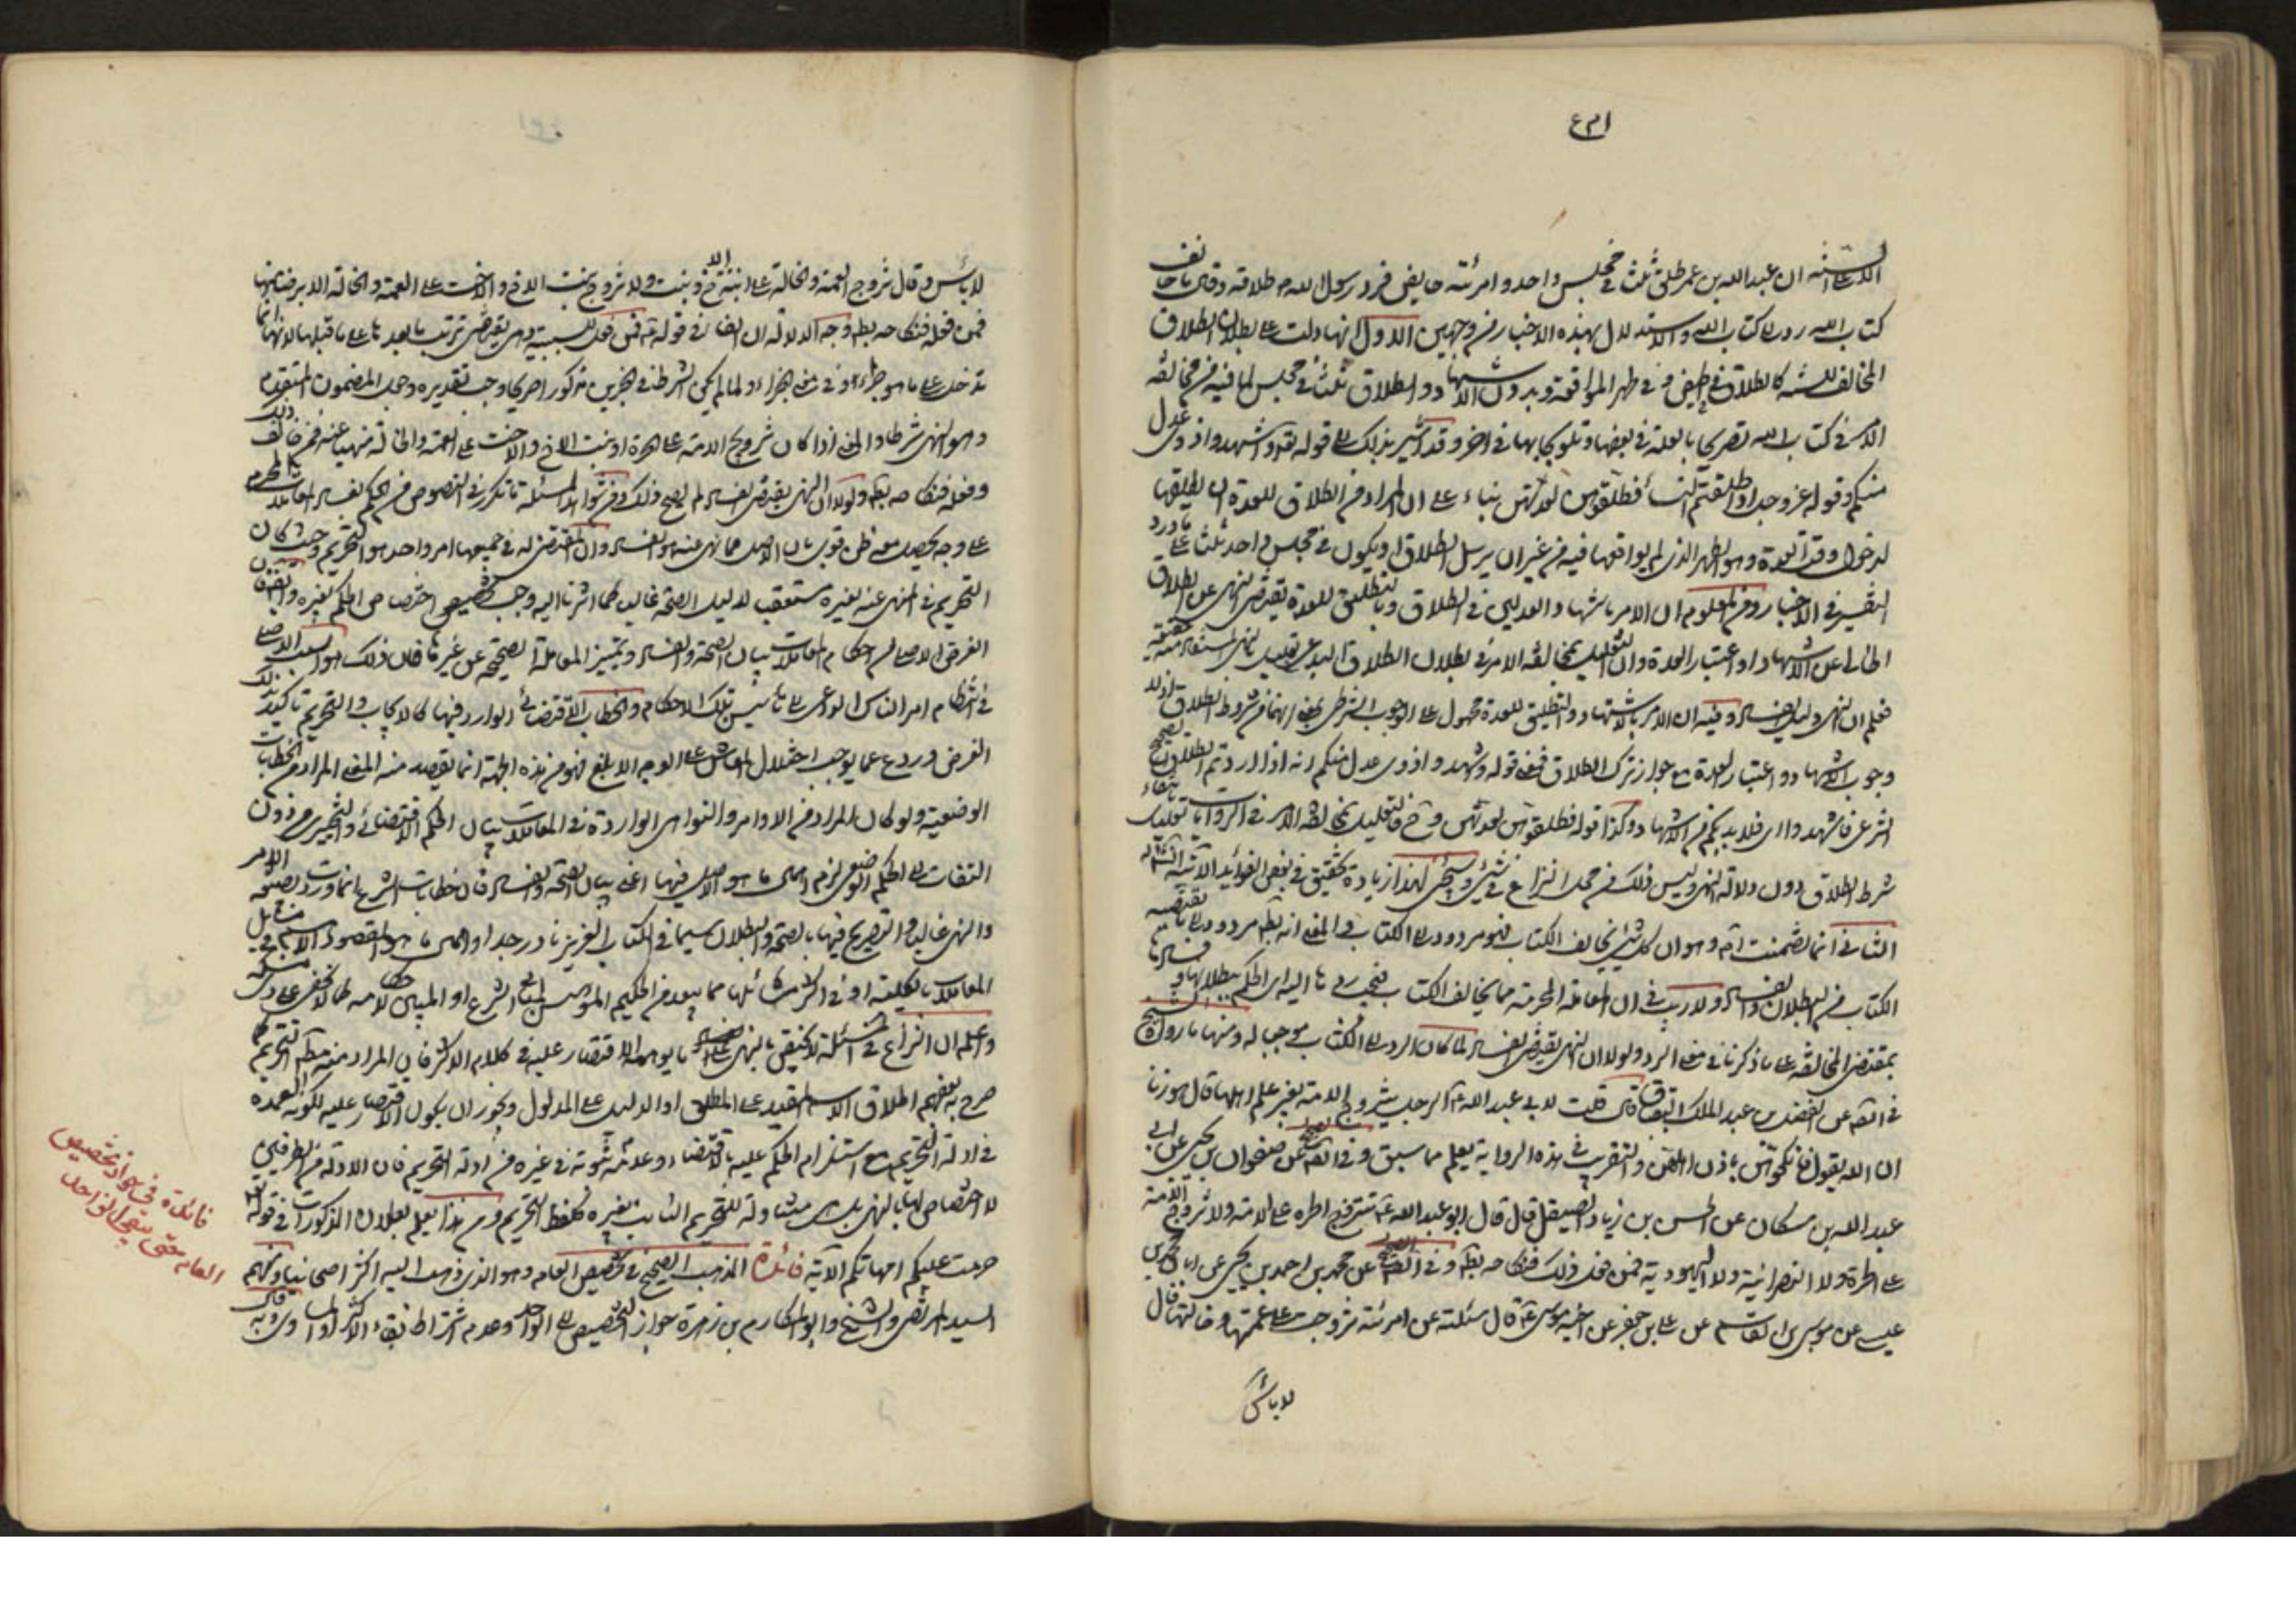 ان عبدالله بن عمر طلق ثلثا في مجلس واحد وامرئته حايض فرد رسول الله ص طلاقه وقال ما خالف
كتاب الله رد الى كتاب الله والاستدلال بهذه الاخبار من وجهين الاول انها دلت على بطلان الطلاق
المخالف للسنه كالطلاق في الحيض وفي طهر المواقعه وبدون الاشهاد والطلاق ثلثا في مجلس لما فيه من مخالفه
الامر في كتاب الله تصريحا بالعلة في بعضها وتلويحا بها في اخر وقد اشير بذلك الى قوله تعه واشهدوا ذوى عدل
منكم وقوله عز وجل اذا طلقتم النساء فطلقوهن لعدتهن بناء على ان المراد من الطلاق للعدة ان يطلقها
لدخول وقت العدة وهو الطهر الذى لم يواقعها فيه من غير ان يرسل الطلاق او يكون في مجلس واحد ثلثا على ما ورد
التفسير في الاخبار ومن المعلوم ان الامر باشهاد العدلين في الطلاق وبالتطليق للعدة يقتضى النهى عن الطلاق
الخالى عن الاشهاد او اعتبار العدة وان التعليل بمخالفه الامر في بطلان الطلاق البدعى تعليل بالنهى المستفاد منه
فعلم ان النهى دليل الفساد وفيه ان الامر بالاشهاد والتطليق للعدة محمول على الوجوب الشرطى بمعنى انهما من شروط الطلاق اذ لا
وجوب للاشهاد واعتبار العدة مع جواز ترك الطلاق فمعنى قوله واشهدوا ذوى عدل منكم انه اذا اردتم الطلاق الصحيح
الشرعى فاشهدوا اى فلا بد لكم من الاشهاد وكذا قوله فطلقوهن لعدتهن وح فالتعليل بمخالفه الامر في الروايات تعليل بانتفاء
شرط الطلاق دون دلالة النهى وليس ذلك من محل النزاع في شئ وسيجئ لهذا زيادة تحقيق في بعض الفوايد الاتية انشاء الله
الثانى انما تضمنت انه وهو ان كل شئ يخالف الكتاب فهو مردود الى الكتاب والمعنى انه بطم مردود الى ما يقتضيه
الكتاب من البطلان والفساد ولا ريب في ان المعاملة المحرمة مما يخالف الكتاب فيجب ردها اليه اى الحكم ببطلانها وفسادها
بمقتضى المخالفه على ما ذكرنا في معنى الرد ولولا ان النهى يقتضى الفساد لما كان الرد الى الكتاب موجبا له ومنها ما رواه الشيخ
عن الفضل بن عبد الملك البقباق قال قلت لابى عبد الله ع الرجل يتزوج الامة بغير علم اهلها قال هو زنا
ان الله يقول فانكحوهن باذن اهلهن والتقريب في هذه الرواية يعلم مما سبق وفي الصحيح عن صفوان بن يحيى عن ابى
عبدالله بن مسكان عن الحسن بن زياد الصيقل قال قال ابو عبد الله ع تتزوج الحره على الامة ولا تتزوج الامة
على الحرة ولا النصرانية ولا اليهودية فمن فعل ذلك فنكاحه بطم وفي الصحيح عن محمد بن احمد بن يحيى عن
عيسى عن موسى بن القاسم عن على بن جعفر عن اخيه موسى ع قال سئلته عن امرئة تزوجت على عمتها وخالتها قال
لا باس
لا باس وقال تزوج العمة والخالة على ابنة الاخ وابنة الاخت ولا تزوج بنت الاخ والاخت على العمة والخالة الا برضا منهما
فمن فعله فنكاحه بطم وجه الدلالة ان الفاء في قوله ع فمن فعل للسببية وهى يقتضى ترتب ما بعدها على ما قبلها لانها انما
تدخل على ما هو جزاء او في معنى الجزاء ولما لم يكن الشرط في الخبرين مذكورا صريحا وجب تقديره وجعل المضمون المتقدم
وهو النهى شرطا والمعنى اذا كان تزويج الامة على الحرة او بنت الاخ والاخت على العمة والخالة منهيا عنه فمن خالف ذلك
وفعله فنكاحه بطم ولولا ان النهى يقتضى الفساد لم يصح ذلك ومن شواهد المسئلة ما تكرر في النصوص من الحكم بفساد المعاملات المحرم
على وجه يحصل معه ظن قوى بان الاصل مما نهى عنه هو الفساد وان المقتضى له في جميعها امر واحد هو التحريم وحيث كان
التحريم في المنهى عنه لغيره متعقب لدليل الصحة غالبا كما اشرنا اليه وجب تخصيص اختصاص الحكم بغيره وايضا فان
الغرض الاصلى من احكام المعاملات بيان الصحة والفساد وتمييز المعاملة الصحيحة عن غيرها فان ذلك هو السبب الاصلى
في انتظام امر الناس الداعى الى تاسيس تلك الاحكام والخطاب الاقتضائى الوارد فيها كالايجاب والتحريم تاكيد لذلك
الغرض وردع عما يوجب اختلال المعاش على الوجه الابلغ فهو من هذه الجهة انما يقصد منه المعنى المراد من الخطابات
الوضعيه ولو كان المراد من الاوامر والنواهى الواردة في المعاملات بيان الحكم الاقتضائى والتخييرى من دون
التفات الى الحكم الوضعى لزم اهمال ما هو الاصل فيها اعنى بيان الصحة والفساد فان خطابات الشرع انما وردت بصيغة الامر
والنهى غالبا والتصريح فيها بالصحة والبطلان سيما في الكتاب العزيز نادر جدا واهمال ما هو المقصود الاهم من جميل
المعاملات بالكلية او في اكثر مسائلها مما يبعد من الحكيم المؤسس لمبانى الشرع او المبين لاحكامه كما لا يخفى على
واعلم ان النزاع في المسئلة لا يختص بالنهى على ما يوهمه الاقتصار عليه في كلام الاكثر فان المراد منه مطلق التحريم كما
صرح به بعضهم اطلاق الاسم المقيد على المطلق او الدليل على المدلول ويجوز ان يكون الاقتصار عليه لكونه العمدة
في ادلة التحريم مع استلزام الحكم عليه بالاقتضاء وعدمه ثبوته في غيره من ادلة التحريم فان الادلة من الطرفين
لا اختصاص لها بالنهى بل هى متناولة للتحريم الثابت بغيره كلفظ التحريم ومن هذا يعلم بطلان المذكورات في قوله تعه
حرمت عليكم امهاتكم الاية فائدة المذهب الصحيح في تخصيص العام وهو الذى ذهب اليه اكثر اصحابنا ومنهم
السيد المرتضى والشيخ وابو المكارم بن زهرة جواز التخصيص الى الواحد وعدم اشتراط بقاء الاكثر او المساوى وبه قال
فائدة في جواز تخصيص
العام حتى يبقى الواحد